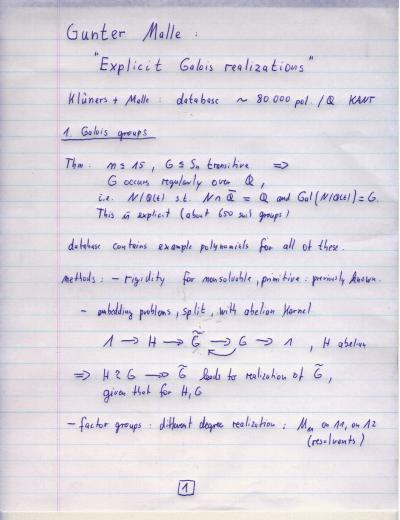 Gunter Malle :
"Explicit Galois realizations"
Klüners + Malle : database ~ 80 000 pol. / Q KANT
1. Galois groups
Thm : n ≤ 15 , G ≤ Sn transitive ⇒
G occurs regularly over Q ,
i.e. N/Q(t) s.t. N ∩ Q̄ = Q and Gal(N/Q(t)) = G.
This is explicit (about 650 such groups)
database contains example polynomials for all of these.
methods : – rigidity for nonsolvable, primitive : previously known.
– embedding problems, split, with abelian Kernel
1 → H → G̃ → G → 1 , H abelian
⇒ H ≀ G → G̃ leads to realization of G̃ ,
given that for H, G
– factor groups : different degree realization : M₁₁ on 11, on 12
(resolvents)
1